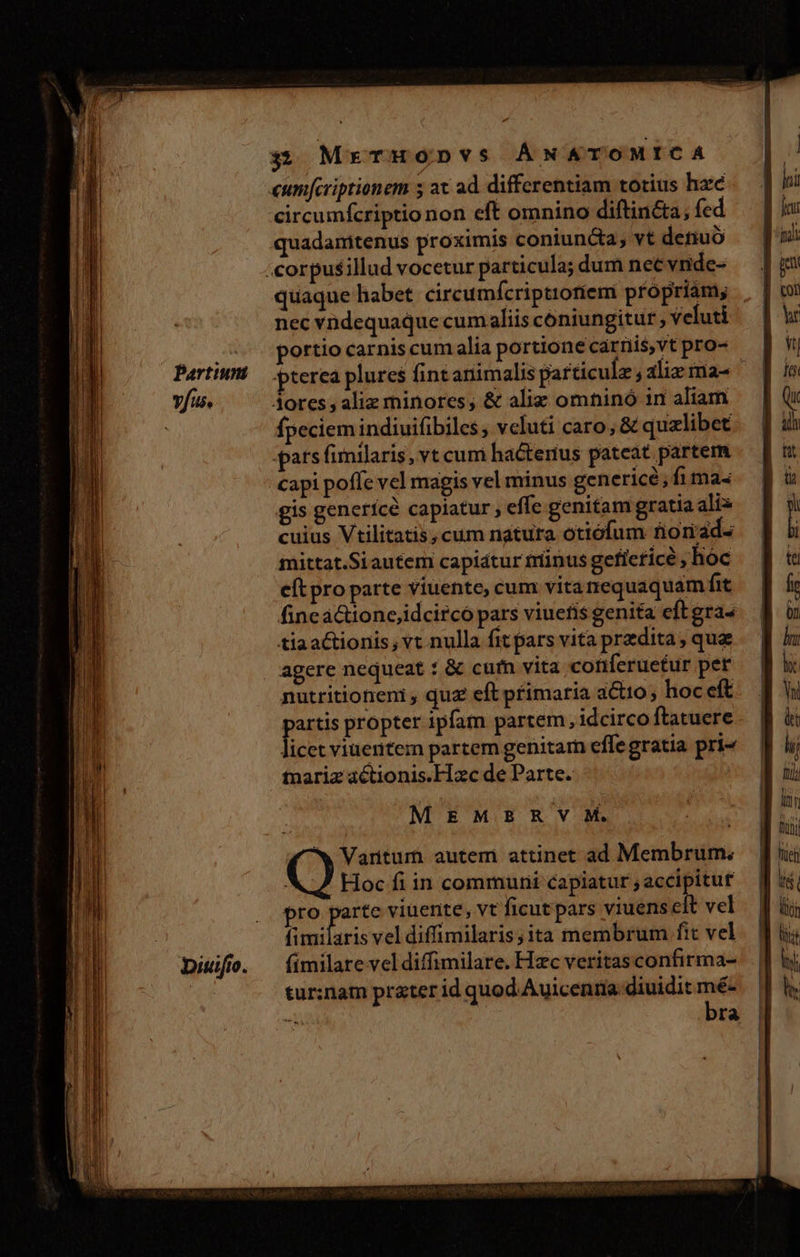 32 METHODVS ANATOMICA
cumſcriptionem ; at ad differentiam totius hæc
circumſcriptio non eſt omnino diſtincta, ſed
quadantenus proximis coniuncta, vt denuò
corpus illud vocetur particula; dum nec vnde-
quaque habet circumſcriptionem propriam,
nec vndequaque cum aliis coniungitur, veluti
portio carnis cum alia portione carnis, vt pro-
Partium pterea plures ſint animalis particulæ, aliæ ma-
vſus. iores, aliæ minores, & aliæ omninò in aliam
ſpeciem indiuiſibiles, veluti caro, & quælibet
pars ſimilaris, vt cum hactenus pateat partem
capi poſſe vel magis vel minus genericè, ſi ma-
gis genericè capiatur, eſſe genitam gratia alis
cuius Vtilitatis, cum natura otioſum non ad-
mittat. Si autem capiatur minus genericè, hoc
eſt pro parte viuente, cum vita nequaquam ſit
ſine actione, idcirco pars viuens genita eſt gra-
tia actionis, vt nulla ſit pars vita prædita, quæ
agere nequeat : & cum vita conſeruetur per
nutritionem, quæ eſt primaria actio, hoc eſt
partis propter ipſam partem, idcirco ſtatuere
licet viuentem partem genitam eſſe gratia pri-
mariæ actionis. Hæc de Parte.
MEMBRVM.
QVantum autem attinet ad Membrum.
Hoc ſi in communi capiatur, accipitur
pro parte viuente, vt ſicut pars viuens eſt vel
ſimilaris vel diſſimilaris, ita membrum ſit vel
Diuiſio. ſimilare vel diſſimilare. Hæc veritas confirma-
tur: nam præter id quod Auicenna diuidit mé-
bra